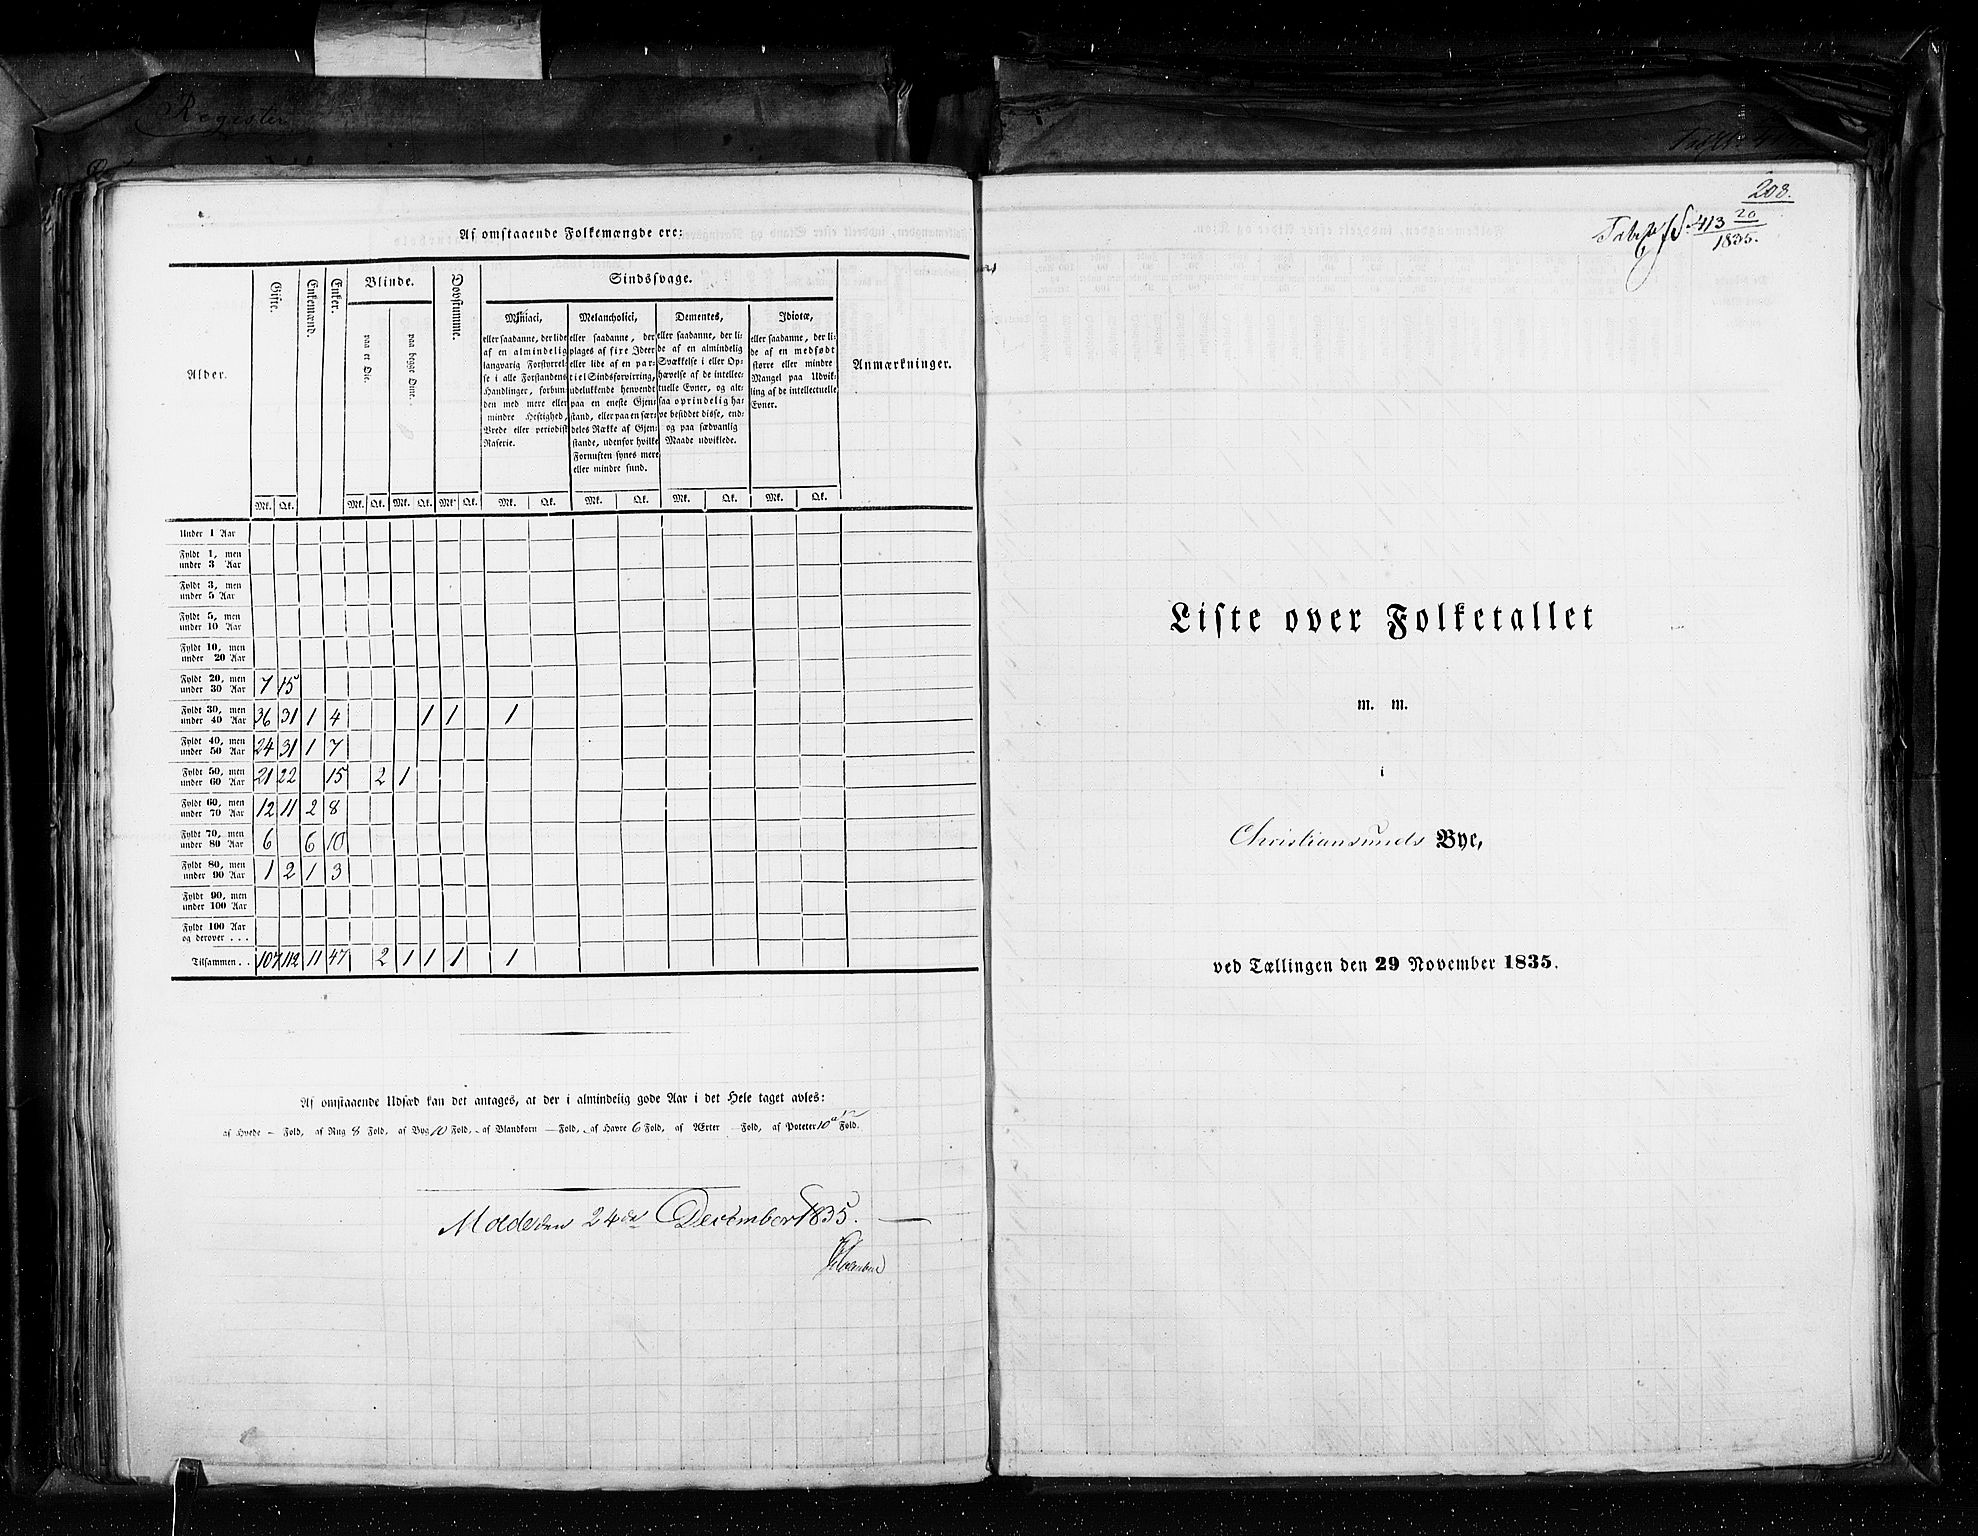 Register
Af omstaaende Folkemængde ere:
Alder.
Gifte.
Enkemænd.
Enker.
Blinde.
paa et Øie.
paa begge Øine.
Døvstumme.
Sindssvage.
Maniaci,
eller saadanne, der lide
af en almindelig
langvarig Forstyrrel-
se i alle Forstandens
Handlinger, forbun-
den med mere eller
mindre Heftighed,
Vrede eller periodisk
Raserie.
Melancholici,
eller saadanne, der
plages af fixe Ideer
eller lide af en par-
tiel Sindsforvirring,
udelukkende henvendt
paa en eneste Gjen-
stand, eller paa en sær-
deles Række af Gjen-
stande, udenfor hvilke
Fornuften synes mere
eller mindre sund.
Dementes,
eller saadanne, der li-
de af en almindelig
Svækkelse i eller Op-
hævelse af de intellec-
tuelle Evner, og alt-
saa oprindelig ha-
ve besiddet disse, end-
og paa sædvanlig
Maade udviklede.
Idiotæ,
eller saadanne, der li-
de af en medfødt
større eller mindre
Mangel paa Udvik-
ling af de intellectuelle
Evner.
Anmærkninger.
Mk. Qk. Mk. Qk. Mk. Qk. Mk. Qk. Mk. Qk. Mk. Qk. Mk. Qk. Mk. Qk.
Under 1 Aar
Fyldt 1, men
under 3 Aar
Fyldt 3, men
under 5 Aar
Fyldt 5, men
under 10 Aar
Fyldt 10, men
under 20 Aar
Fyldt 20, men
under 30 Aar 7 15
Fyldt 30, men
under 40 Aar 36 31 1 4 1 1 1
Fyldt 40, men
under 50 Aar 24 31 1 7
Fyldt 50, men
under 60 Aar 21 22 15 2 1
Fyldt 60, men
under 70 Aar 12 11 2 8
Fyldt 70, men
under 80 Aar 6 6 10
Fyldt 80, men
under 90 Aar 1 2 1 3
Fyldt 90, men
under 100 Aar
Fyldt 100 Aar
og derover . . .
Tilsammen . . 107 112 11 47 2 1 1 1 1
Af omstaaende Udsæd kan det antages, at der i almindelig gode Aar i det Hele taget avles:
af Hvede – Fold, af Rug 8 Fold, af Byg 10 Fold, af Blandkorn – Fold, af Havre 6 Fold, af Ærter Fold, af Poteter 10 a 12 Fold.
Molde den 24de December 1835.
208.
413 20
1835.
Liste over Folketallet
m. m.
i
Christiansunds Bye,
ved Tællingen den 29 November 1835.